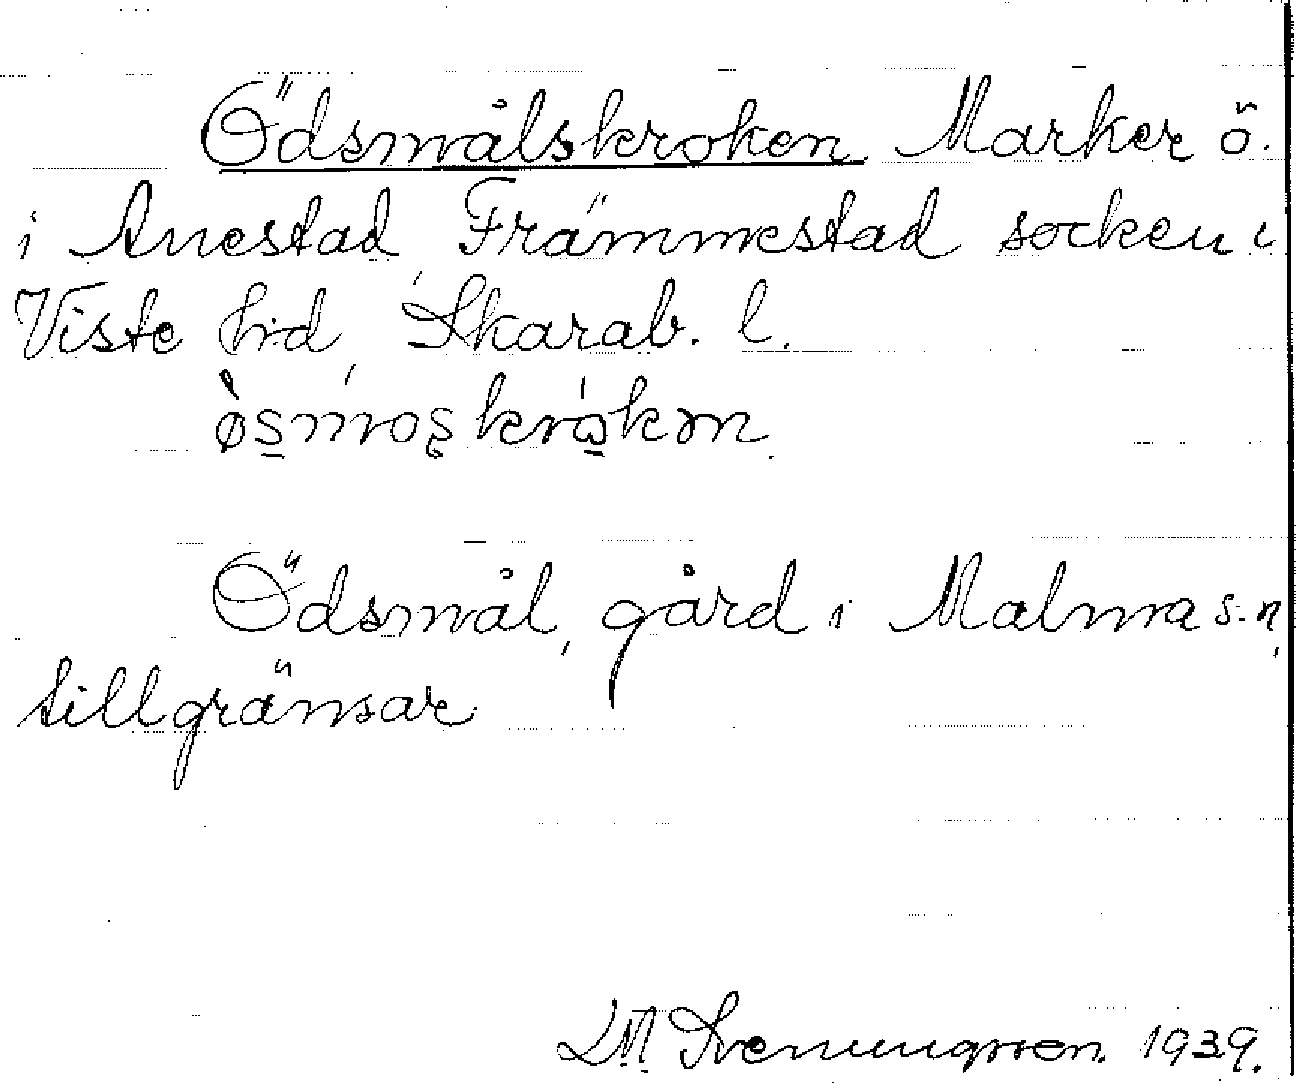 Ödsmålskroken Marker ö.
i Anestad, Främmestad socken i
Viste hrd, Skarab. l.
Ödsmål, gård i Malma s-n,
tillgränsar
LM Svenungsson. 1939.